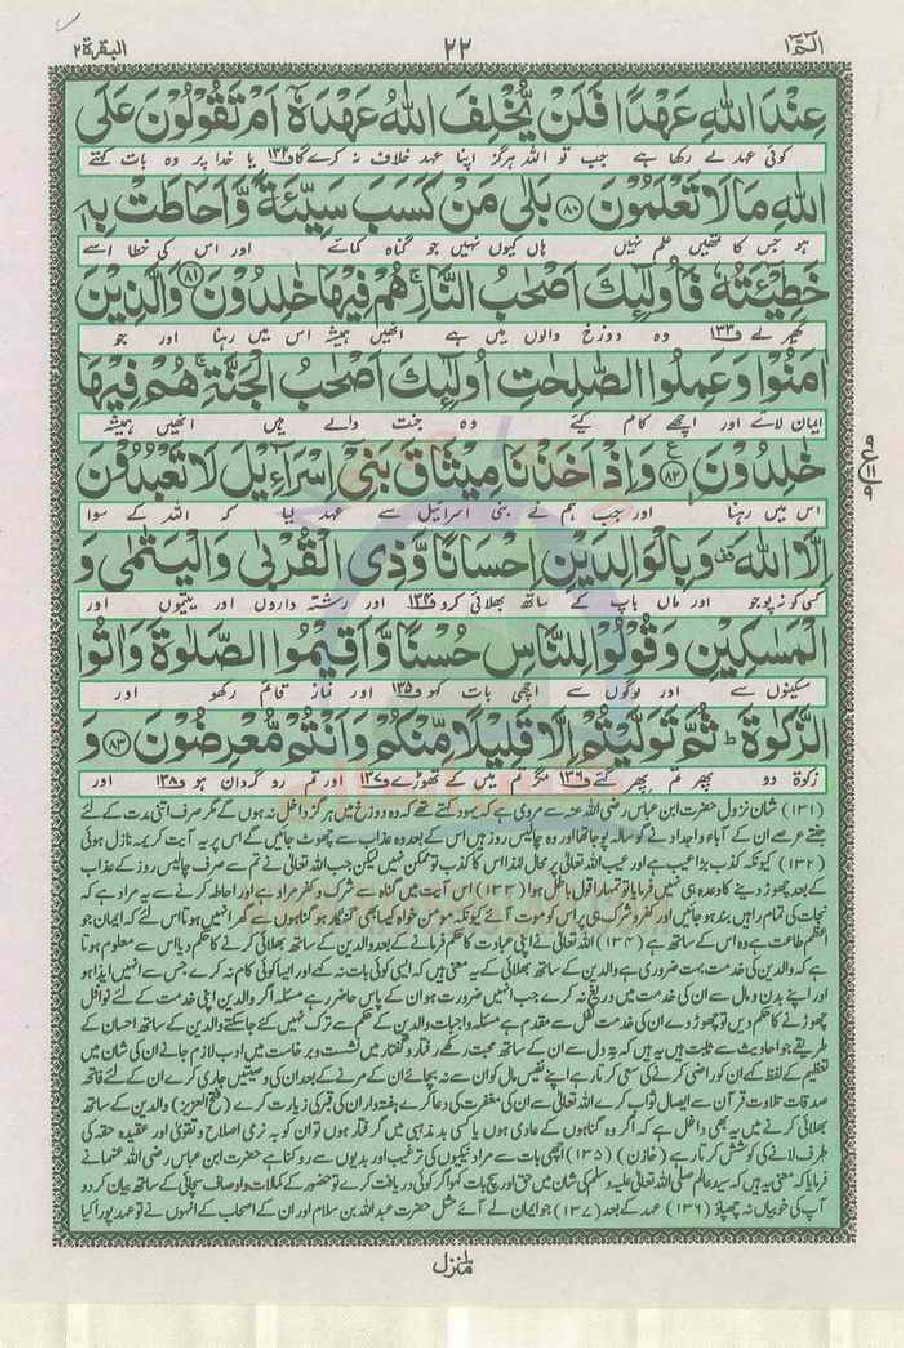 الٓمٓ ١
٢٢
البقرة ٢
عِنْدَ اللّٰهِ عَهْدًا فَلَنْ يُّخْلِفَ اللّٰهُ عَهْدَهٗۤ اَمْ تَقُوْلُوْنَ عَلَى
کوئی عہد لے رکھا ہے جب تو اللہ ہرگز اپنا عہد خلاف نہ کرے گا ف۱۳۲ یا خدا پر وہ بات کہتے
اللّٰهِ مَا لَا تَعْلَمُوْنَ ﴿٨٠﴾ بَلٰى مَنْ كَسَبَ سَيِّئَةً وَّ اَحَاطَتْ بِهٖ
ہو جس کا تمہیں علم نہیں ہاں کیوں نہیں جو گناہ کمائے اور اس کی خطا اسے
خَطِيْٓئَتُهٗ فَاُولٰٓئِكَ اَصْحٰبُ النَّارِ ۚ هُمْ فِيْهَا خٰلِدُوْنَ ﴿٨١﴾ وَ الَّذِيْنَ
گھیر لے ف۱۳۳ وہ دوزخ والوں میں ہے انھیں ہمیشہ اس میں رہنا اور جو
اٰمَنُوْا وَ عَمِلُوا الصّٰلِحٰتِ اُولٰٓئِكَ اَصْحٰبُ الْجَنَّةِ ۚ هُمْ فِيْهَا
ایمان لائے اور اچھے کام کیے وہ جنت والے ہیں انھیں ہمیشہ
خٰلِدُوْنَ ﴿٨٢﴾ ع وَ اِذْ اَخَذْنَا مِيْثَاقَ بَنِيْٓ اِسْرَآءِيْلَ لَا تَعْبُدُوْنَ
اس میں رہنا اور جب ہم نے بنی اسرائیل سے عہد لیا کہ اللہ کے سوا
اِلَّا اللّٰهَ وَ بِالْوَالِدَيْنِ اِحْسَانًا وَّ ذِي الْقُرْبٰى وَ الْيَتٰمٰى وَ
کسی کو نہ پوجو اور ماں باپ کے ساتھ بھلائی کرو ف۱۳۴ اور رشتہ داروں اور یتیموں اور
الْمَسٰكِيْنِ وَ قُوْلُوْا لِلنَّاسِ حُسْنًا وَّ اَقِيْمُوا الصَّلٰوةَ وَ اٰتُوا
مسکینوں سے اور لوگوں سے اچھی بات کہو ف۱۳۵ اور نماز قائم رکھو اور
الزَّكٰوةَ ؕ ثُمَّ تَوَلَّيْتُمْ اِلَّا قَلِيْلًا مِّنْكُمْ وَ اَنْتُمْ مُّعْرِضُوْنَ ﴿٨٣﴾ وَ
زکوٰة دو پھر تم پھر گئے ف۱۳۶ مگر تم میں کے تھوڑے ف۱۳۷ اور تم رو گردان ہو ف۱۳۸ اور
(۱۳۱) شان نزول حضرت ابن عباس رضی اللہ عنہ سے مروی ہے کہ یہود کہتے تھے کہ وہ دوزخ میں ہرگز داخل نہ ہوں گے مگر صرف اتنی مدت کے لئے
جتنے عرصے ان کے آباء و اجداد نے گوسالہ پوجا تھا اور وہ چالیس روز ہیں اس کے بعد وہ عذاب سے چھوٹ جائیں گے اس پر یہ آیت کریمہ نازل ہوئی
(۱۳۲) کیونکہ کذب بڑا عیب ہے اور عیب اللہ تعالیٰ پر محال لہٰذا اس کا کذب تو ممکن نہیں لیکن جب اللہ تعالیٰ نے تم سے صرف چالیس روز کے عذاب
کے بعد چھوڑ دینے کا وعدہ ہی نہیں فرمایا تو تمہارا قول باطل ہوا (۱۳۳) اس آیت میں گناہ سے شرک و کفر مراد ہے اور احاطہ کرنے سے یہ مراد ہے کہ
نجات کی تمام راہیں بند ہو جائیں اور کفر و شرک ہی پر اس کو موت آئے کیونکہ مومن خواہ کیسا بھی گنہگار ہو گناہوں سے گھرا نہیں ہوتا اس لئے کہ ایمان جو
اعظم طاعت ہے وہ اس کے ساتھ ہے (۱۳۴) اللہ تعالیٰ نے اپنی عبادت کا حکم فرمانے کے بعد والدین کے ساتھ بھلائی کرنے کا حکم دیا اس سے معلوم ہوتا
ہے کہ والدین کی خدمت بہت ضروری ہے والدین کے ساتھ بھلائی کے یہ معنی ہیں کہ ایسی کوئی بات نہ کہے اور ایسا کوئی کام نہ کرے جس سے انہیں ایذا ہو
اور اپنے بدن و مال سے ان کی خدمت میں دریغ نہ کرے جب انہیں ضرورت ہو ان کے پاس حاضر رہے مسئلہ اگر والدین اپنی خدمت کے لئے نوافل
چھوڑنے کا حکم دیں تو چھوڑ دے ان کی خدمت نفل سے مقدم ہے مسئلہ واجبات والدین کے حکم سے ترک نہیں کئے جا سکتے والدین کے ساتھ احسان کے
طریقے جو احادیث سے ثابت ہیں یہ ہیں کہ تہ دل سے ان کے ساتھ محبت رکھے رفتار و گفتار میں نشست و برخاست میں ادب لازم جانے ان کی شان میں
تعظیم کے لفظ کہے ان کو راضی کرنے کی سعی کرتا رہے اپنے نفیس مال کو ان سے نہ بچائے ان کے مرنے کے بعد ان کی وصیتیں جاری کرے ان کے لئے فاتحہ
صدقات تلاوت قرآن سے ایصال ثواب کرے اللہ تعالیٰ سے ان کی مغفرت کی دعا کرے ہفتہ وار ان کی قبر کی زیارت کرے (فتح العزیز) والدین کے ساتھ
بھلائی کرنے میں یہ بھی داخل ہے کہ اگر وہ گناہوں کے عادی ہوں یا کسی بد مذہبی میں گرفتار ہوں تو ان کو بہ نرمی اصلاح و تقویٰ اور عقیدہ حقہ کی
طرف لانے کی کوشش کرتا رہے (خازن) (۱۳۵) اچھی بات سے مراد نیکیوں کی ترغیب اور بدیوں سے روکنا ہے حضرت ابن عباس رضی اللہ عنہما نے
فرمایا کہ معنی یہ ہیں کہ سید عالم صلی اللہ تعالیٰ علیہ وسلم کی شان میں حق اور سچ بات کہو اگر کوئی دریافت کرے تو حضور کے کمالات و اوصاف سچائی کے ساتھ بیان کر دو
آپ کی خوبیاں نہ چھپاؤ (۱۳۶) عہد کے بعد (۱۳۷) جو ایمان لے آئے مثل حضرت عبداللہ بن سلام اور ان کے اصحاب کے انہوں نے تو عہد پورا کیا
منزل